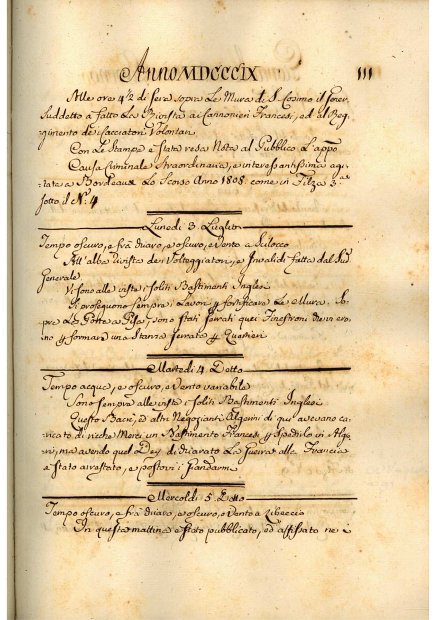 ANNO MDCCCIX III
Alle ore 4½ di sera sopra le Mura di S. Cosimo il
Suddetto à fatto la Rivista ai Cannonieri Francesi, ed al Reg-
gimento de Cacciatori Volontari
Con le Stampe è stata resa Nota al Pubblico l'app.
Causa Criminale Straordinaria, e interessantissima agi-
tata a Bordeaux lo Scorso Anno 1808. come in Filza 3.
sotto il N. 4
Lunedi 3. Luglio
Tempo oscuro, e frà chiaro, e oscuro, e Vento a Scilocco
All'alba rivista de Volteggiatori, e Invalidi fatta dal Sud.
Generale
Vi sono alle viste i soliti Bastimenti Inglesi
Si proseguono sempre i Lavori p fortificare le Mura. So-
pra la Porta a Pisa, sono stati serrati quei Finestroni che vi ero-
no p formare una Stanza serrata p Quartieri
Martedi 4. Detto
Tempo acqua, e oscuro, e Vento variabile
Sono sempre alle viste i soliti Bastimenti Inglesi
Questo Bacri, ed altri Negozianti Algerini di qui avevano ca-
ricato di ricche Merci un Bastimento Francese p spedirlo in Alge-
ri, ma avendo quel Dey dichiarato la Guerra alla Francia
è stato arrestato, e postovi i Gandarmi
Mercoldi 5. Detto
Tempo oscuro, e frà chiaro, e oscuro, e Vento a Libeccio
In questa mattina è stato pubblicato, ed affissato ne i